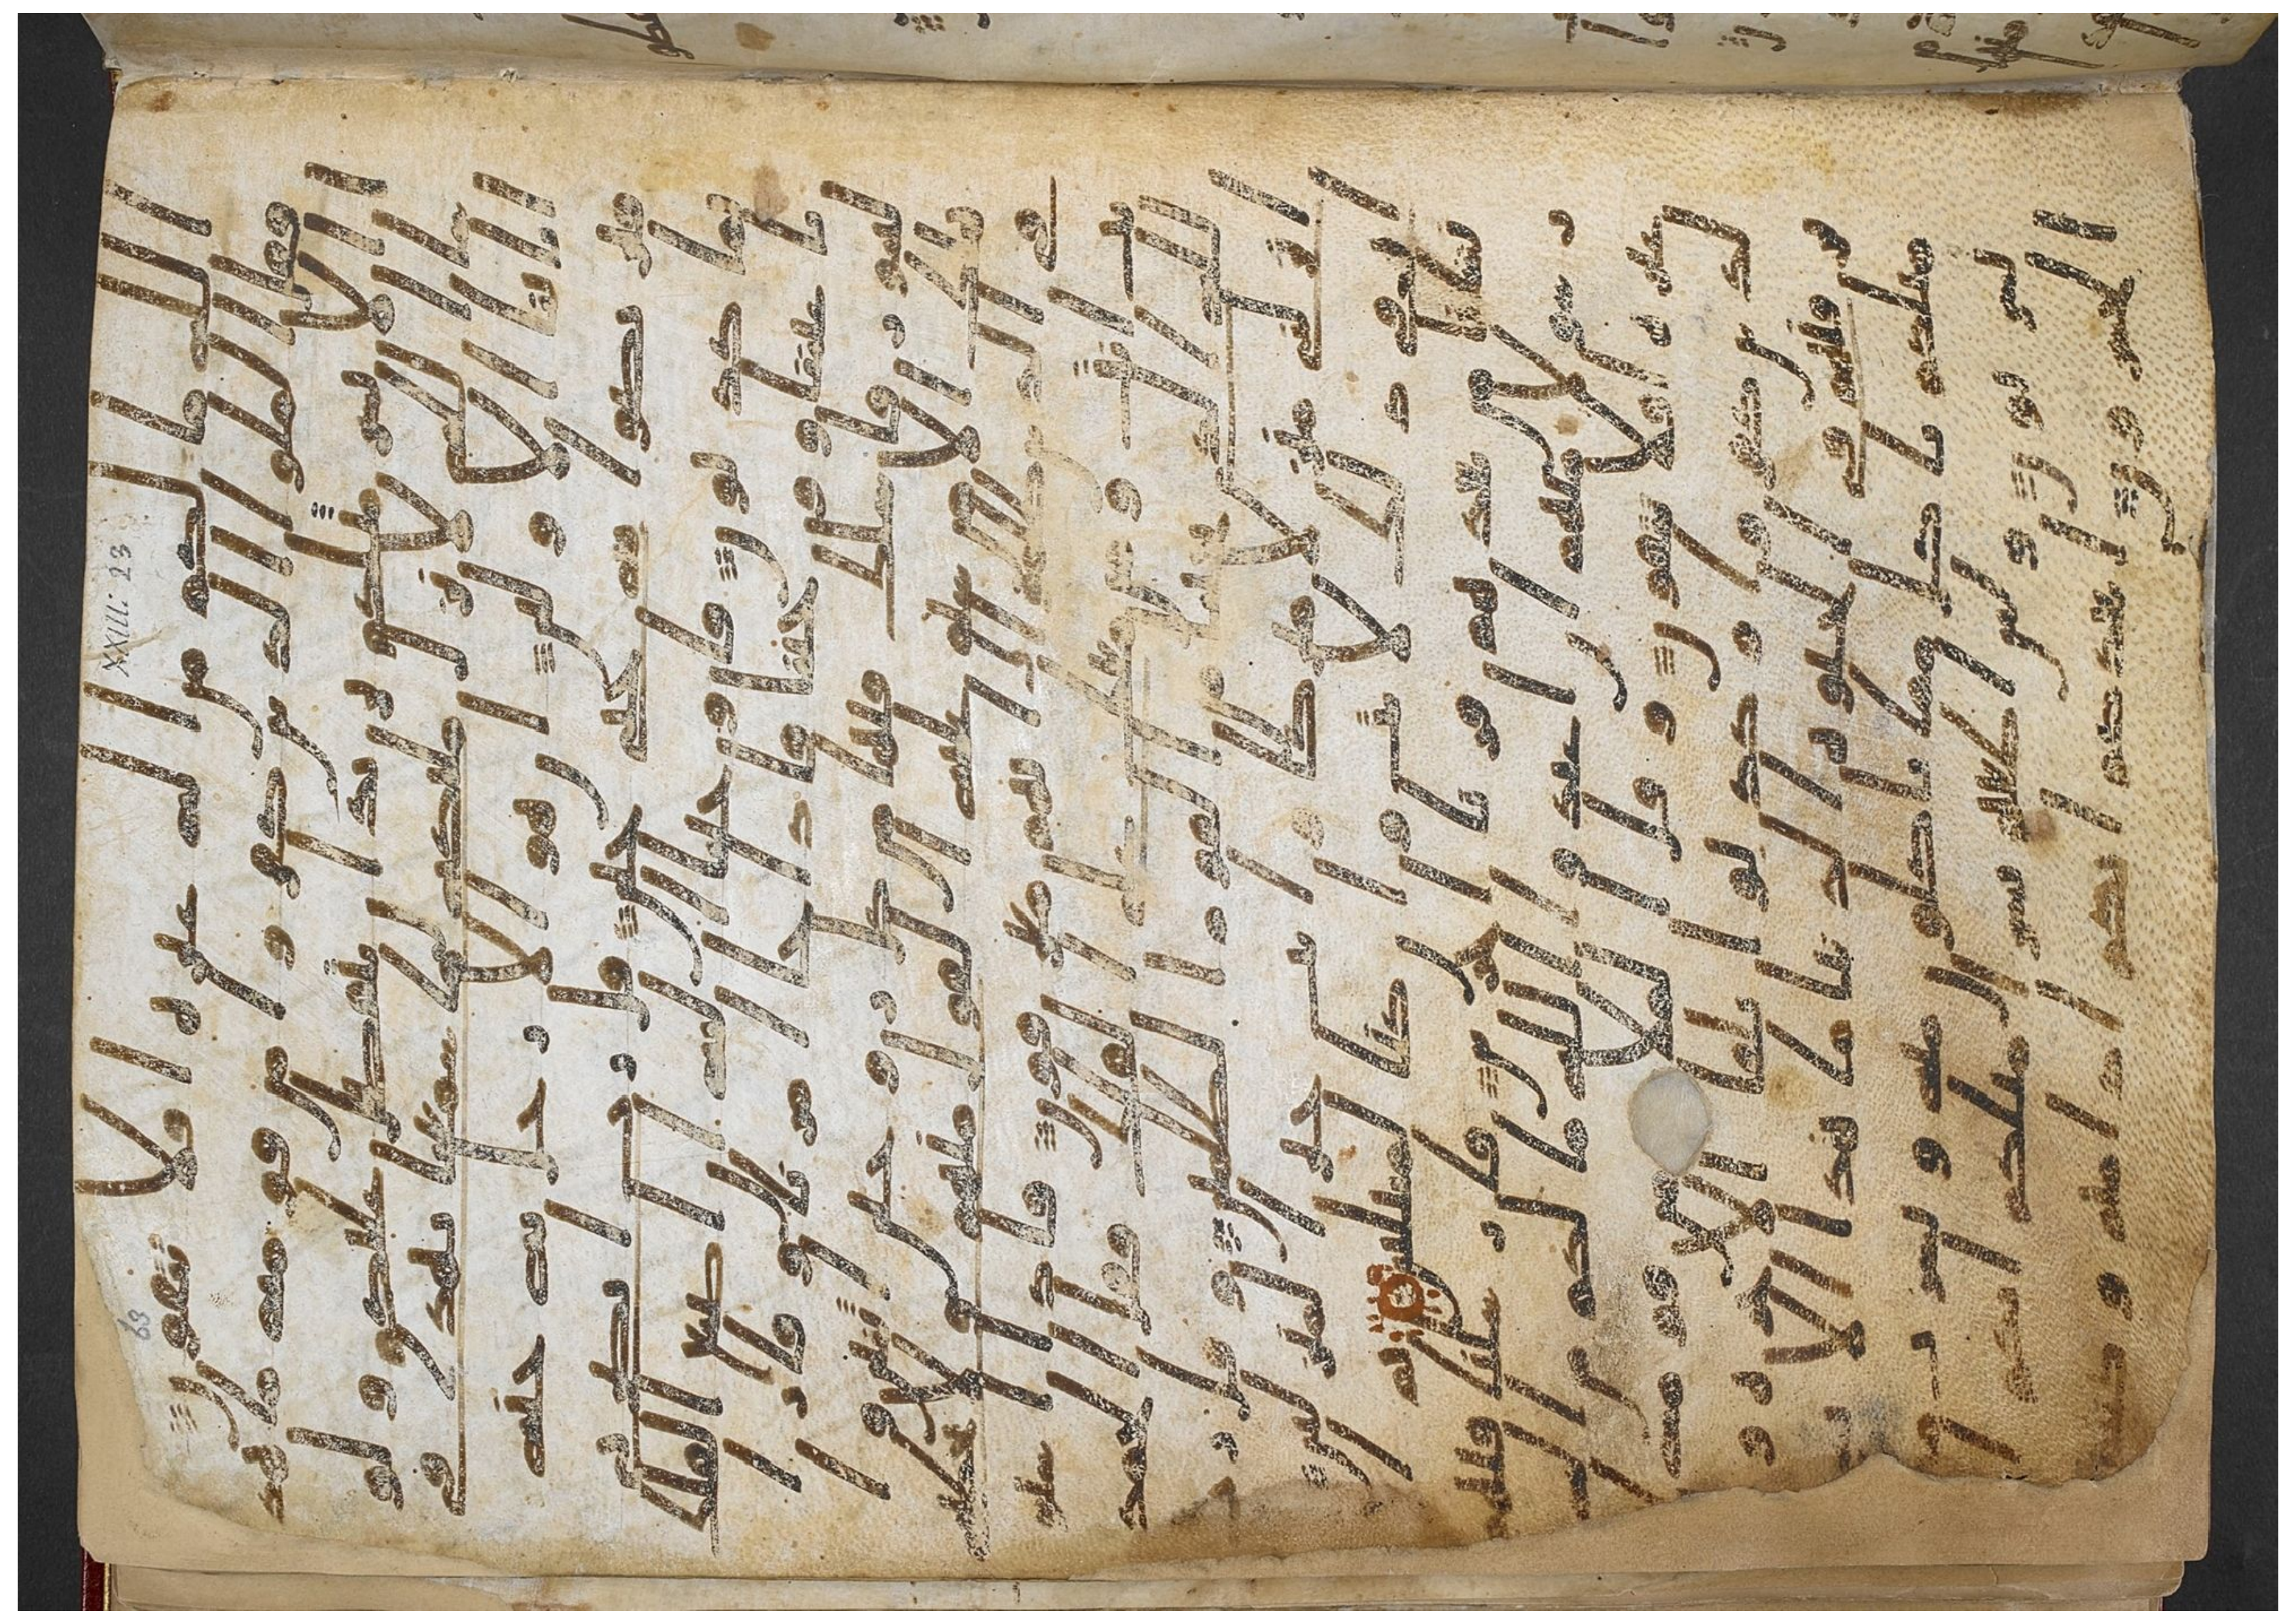 ا الله ما لكم من اله غيره افلا تتقون
فقال الملوا الذين كفروا من قومه ما هذ
ا الا بشر مثلكم يريد ان يتفضل عليكم ولو
شا الله لانزل ملئكة ما سمعنا بهذا في
ابائنا الاولين ان هو الا رجل به جنة
فتربصوا به حتى حين قل رب انصر
ني بما كذبون فاوحينا اليه ان اصنع الفلك
باعيننا ووحينا فاذا جا امرنا وفار ا
لتنور فاسلك فيها من كل زوجين اثنين و
اهلك الا من سبق عليه القول منهم ولا تخطبني
في الذين ظلموا انهم مغرقون فاذا است
ويت انت ومن معك على الفلك فقل الحمد
لله الذي نجنا من القوم الظلمين وقل رب
انزلني منزلا مبركا وانت خير المنزلين ا
ن في ذلك لايت وان كنا لمبتلين ثم
انشانا من بعدهم قرنا اخرين فارسلنا فيهم
رسولا منهم ان اعبدوا الله ما لكم من ا
له غيره افلا تتقون وقال الملا من قومه
الذين كفروا وكذبوا بلقا الاخرة و
اترفنهم في الحيوة الدنيا ما هذا الا بشر
مثلكم ياكل مما تاكلون منه ويشر
ب مما تشربون ولئن اطعتم بشرا مثلكم ا
نكم اذا لخسرون ايعدكم انكم اذا متم وكنتم
XXIII: 23
63